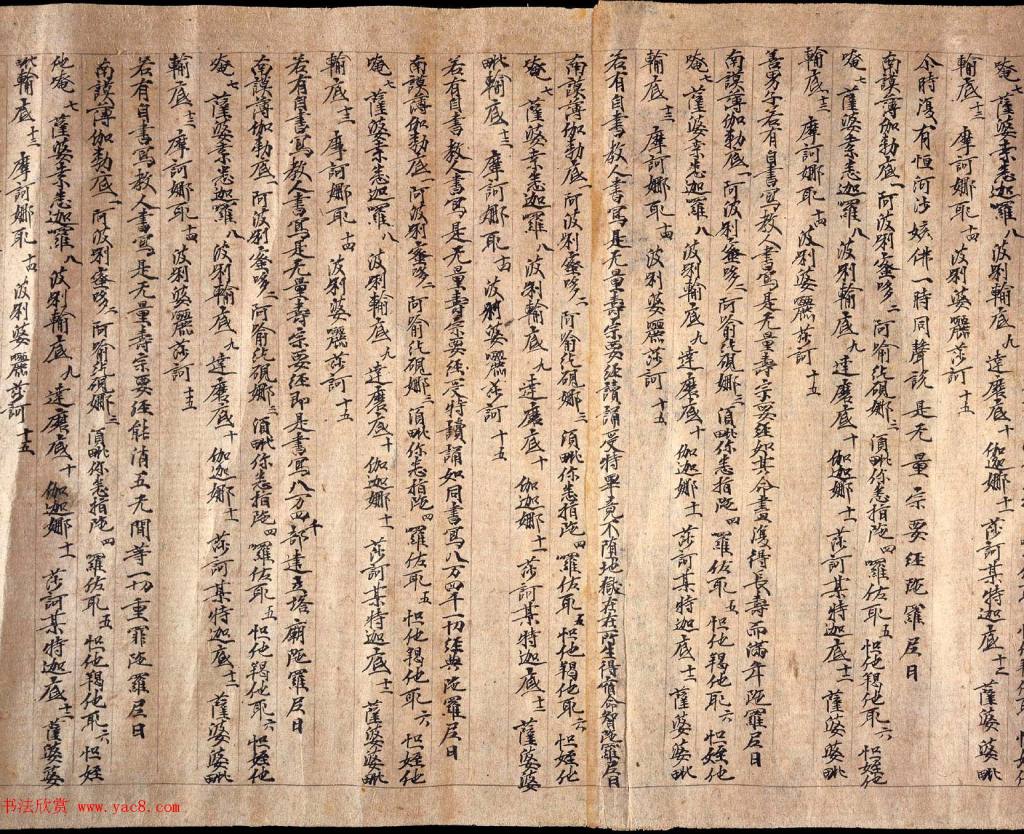 唵七 薩婆桒悉迦羅八 波唎輸底九 達磨底十 伽迦娜十一 莎訶某特迦底十二 薩婆婆毗
輸底十三 摩訶娜耶十四 波唎婆囉莎訶十五
尒時復有恒河沙姟佛一時同聲說是无量宗要經陁羅尼曰
南謨薄伽勃底一 阿波唎蜜哆二 阿喻纥硯娜三 須毗你悉指陁四 羅佐耶五 怛他羯他耶六 怛姪他
唵七 薩婆桒悉迦羅八 波唎輸底九 達磨底十 伽迦娜十一 莎訶某特迦底十二 薩婆婆毗
輸底十三 摩訶娜耶十四 波唎婆囉莎訶十五
善男子若有自書寫教人書寫是无量壽宗要經如其命盡復得長壽而滿年陁羅尼曰
南謨薄伽勃底一 阿波唎蜜哆二 阿喻纥硯娜三 須毗你悉指陁四 羅佐耶五 怛他羯他耶六 怛姪他
唵七 薩婆桒悉迦羅八 波唎輸底九 達磨底十 伽迦娜十一 莎訶某特迦底十二 薩婆婆毗
輸底十三 摩訶娜耶十四 波唎婆囉莎訶十五
若有自書教人書寫是无量壽宗要經讀誦受持畢竟不墮地獄在在所生得宿命智陁羅尼曰
南謨薄伽勃底一 阿波唎蜜哆二 阿喻纥硯娜三 須毗你悉指陁四 羅佐耶五 怛他羯他耶六 怛姪他
唵七 薩婆桒悉迦羅八 波唎輸底九 達磨底十 伽迦娜十一 莎訶某特迦底十二 薩婆婆
毗輸底十三 摩訶娜耶十四 波唎婆囉莎訶十五
若有自書教人書寫是无量壽宗要經受持讀誦如同書寫八万四千一切經典陁羅尼曰
南謨薄伽勃底一 阿波唎蜜哆二 阿喻纥硯娜三 須毗你悉指陁四 羅佐耶五 怛他羯他耶六 怛姪他
唵七 薩婆桒悉迦羅八 波唎輸底九 達磨底十 伽迦娜十一 莎訶某特迦底十二 薩婆婆毗
輸底十三 摩訶娜耶十四 波唎婆囉莎訶十五
若有自書寫教人書寫是无量壽宗要經即是書寫八万四千部建立塔廟陁羅尼曰
南謨薄伽勃底一 阿波唎蜜哆二 阿喻纥硯娜三 須毗你悉指陁四 羅佐耶五 怛他羯他耶六 怛姪他
唵七 薩婆桒悉迦羅八 波唎輸底九 達磨底十 伽迦娜十一 莎訶某特迦底十二 薩婆婆毗
輸底十三 摩訶娜耶十四 波唎婆囉莎訶十五
若有自書寫教人書寫是无量壽宗要經能消五无間等一切重罪陁羅尼曰
南謨薄伽勃底一 阿波唎蜜哆二 阿喻纥硯娜三 須毗你悉指陁四 羅佐耶五 怛他羯他耶六 怛姪
他唵七 薩婆桒悉迦羅八 波唎輸底九 達磨底十 伽迦娜十一 莎訶某特迦底十二 薩婆婆
毗輸底十三 摩訶娜耶十四 波唎婆囉莎訶十五
书法欣赏 www.yac8.com